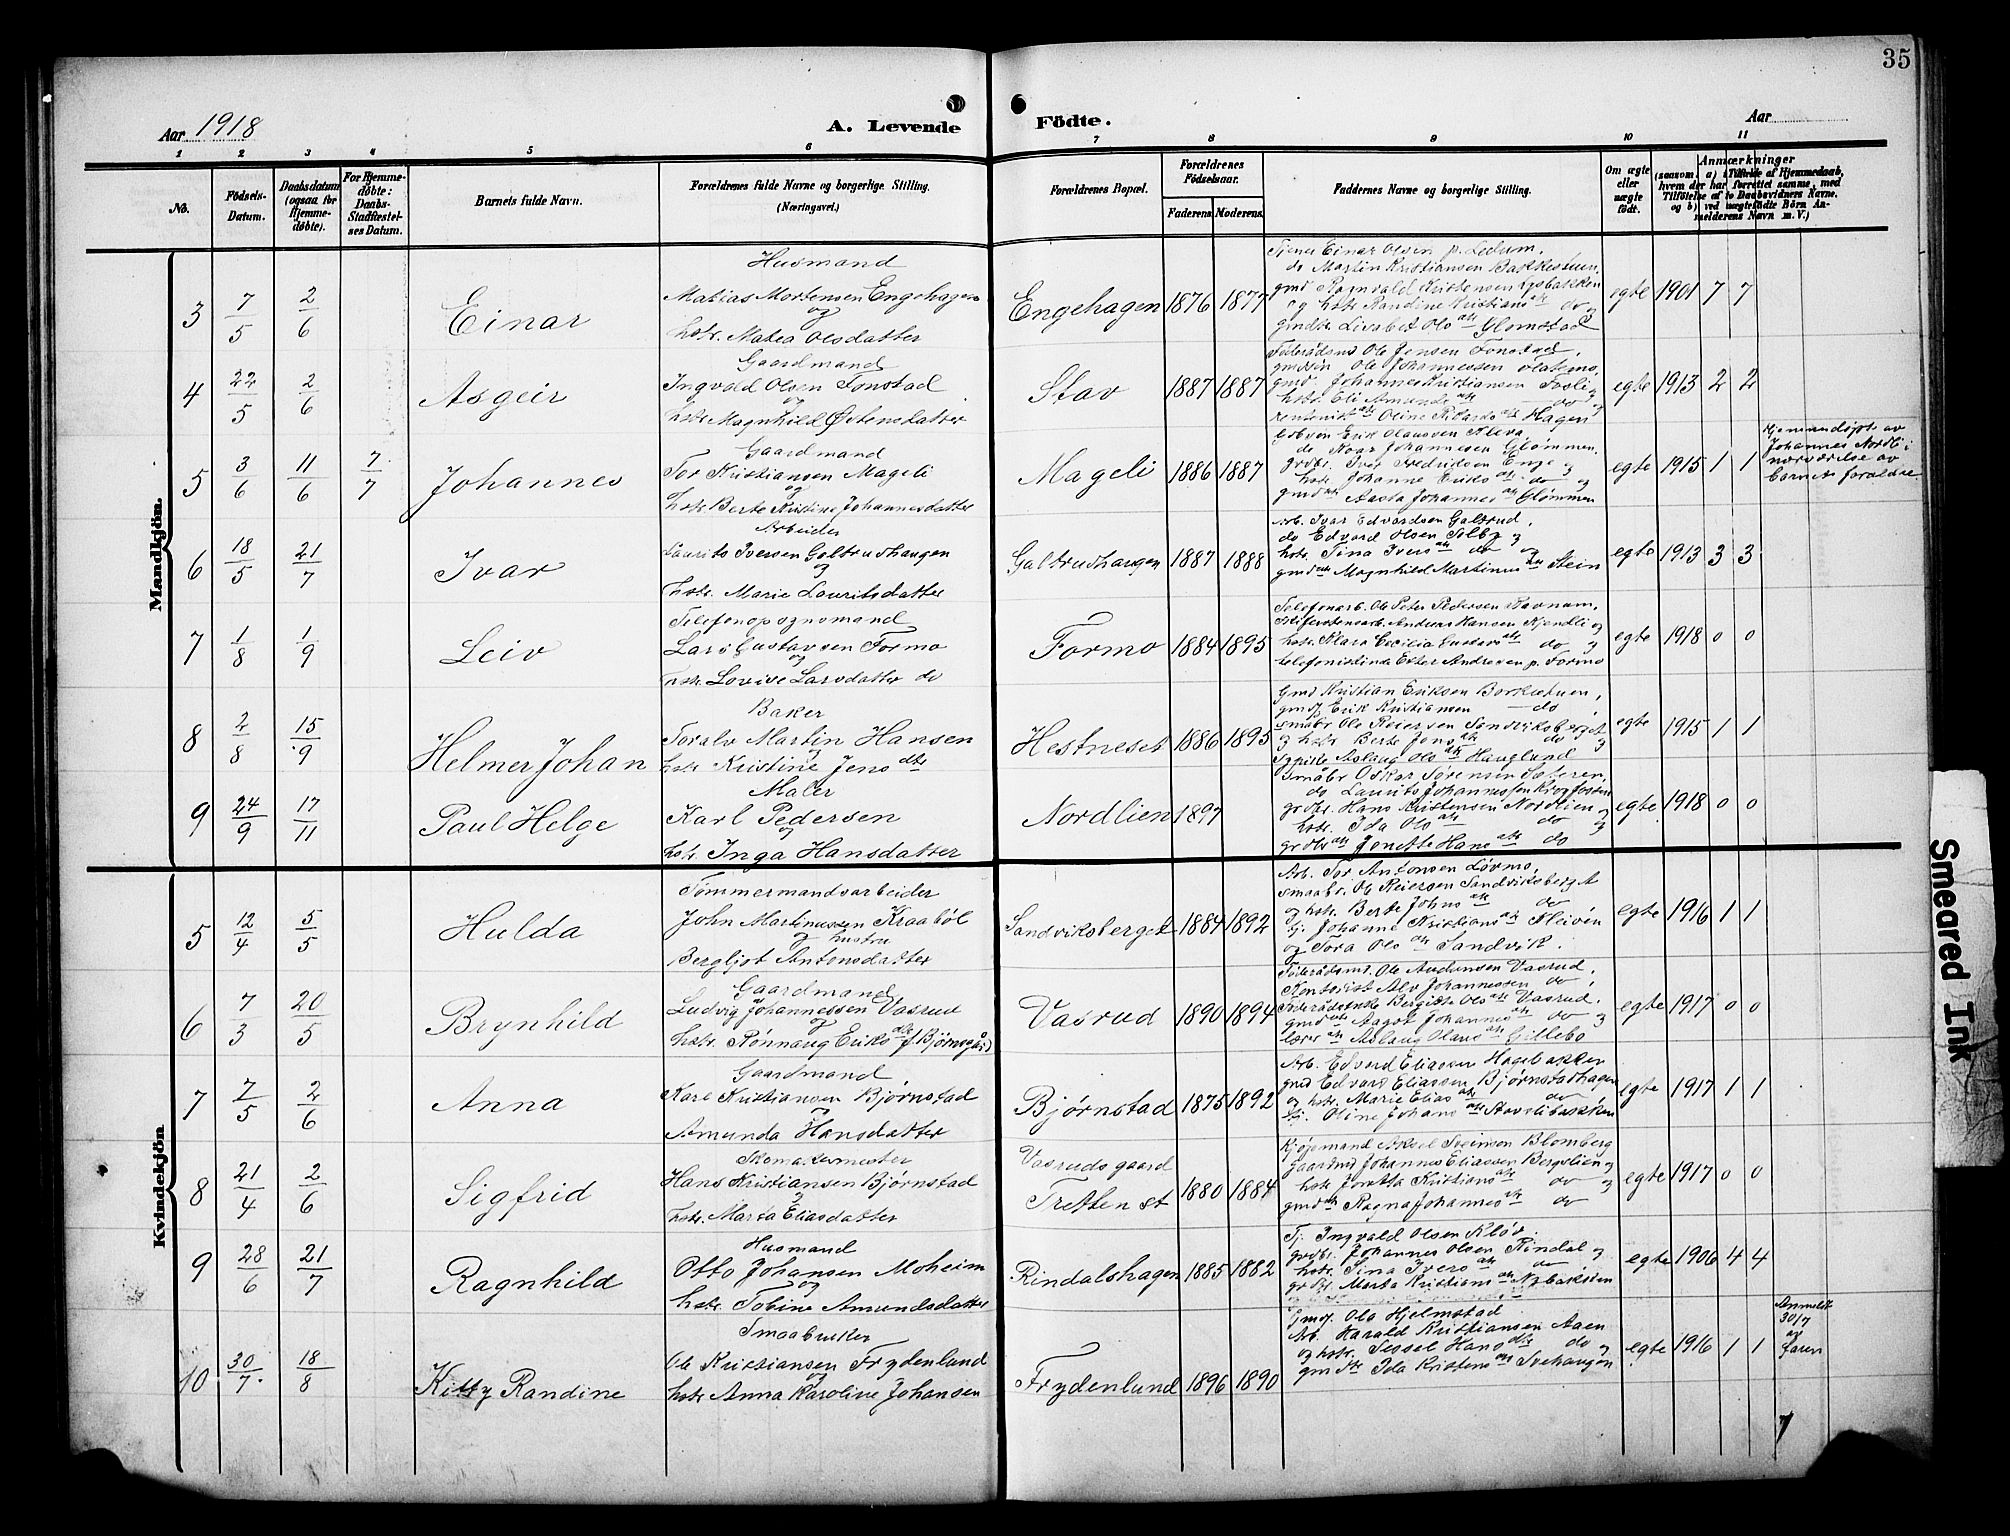 35
Aar 1918
A. Levende
Födte.
Aar
1 2 3 4 5 6 7 8 9 10 11
No.
Födsels-
Datum.
Daabsdatum
(ogsaa for
Hjemme-
döbte).
For Hjemme-
döbte:
Daabs-
Stadfestel-
ses Datum.
Barnets fulde Navn.
Forældrenes fulde Navne og borgerlige Stilling.
(Næringsvei.)
Forældrenes Bopæl.
Forældrenes
Födselsaar.
Faderens Moderens
Faddernes Navne og borgerlige Stilling.
Om ægte
eller
uægte
födt.
Anmærkninger
(saasom: a) i Tilfælde af Hjemmedaab,
hvem der har forrettet samme, med
Tilföielse af to Daabsvidners Navne,
og b) ved uægtefödte Börn An-
melderens Navn m. V.)
Mandkjön.
3 7/5 2/6 Einar
Husmand
Matias Mortensen Engehagen
og
hstr. Matea Olsdatter
Engehagen 1876 1877
Tjener Einar Olsen p. Ledum,
do Martin Kristiansen Bakkestuen,
gmd Ragnvald Kristensen Lysbakken
og hstr. Randine Kristians dtr do og
gmdtr Lisabet Ols dtr Glomstad
egte 1901 7 7
4 22/5 2/6 Asgeir
Gaardmand
Ingvald Olsen Fonstad
og
hstr. Magnhild Østensdatter
Stav 1887 1887
Föderådsmd Ole Jensen Fonstad,
gmdsøn Ole Johannessen
gmd. Johannes Kristiansen Fosli og
hstr. Eli Amunds dtr do og
Oline Rikards dtr Hagen
egte 1913 2 2
5 3/6 11/6 7/7 Johannes
Gaardmand
Tor Kristiansen Mageli
og
hstr. Berte Kristine Johannesdatter
Mageli 1886 1887
Erik Olaussen Kleva
do Roar Johannesen Glømmen,
grdbr. Ivar Fredriksen Enge og
hstr. Johanne Eriks dtr do og
gmd dtr Aasta Johannes dtr Glømmen
egte 1915 1 1
Hjemmedøpt av
Johannes Nordli i
nærværelse av
barnets forældre.
6 18/5 21/7 Ivar
Arbeider
Laurits Iversen Galtrudhaugen
og
hstr. Marie Lauritsdatter
Galtrudhaugen 1887 1888
Arb. Ivar Edvardsen Galtrud,
do Edvard Olsen Solby og
hstr. Tina Ivers dtr do og
gmd dtr Magnhild Martinus dtr Stein
egte 1913 3 3
7 1/8 1/9 Leiv
Telefonopsynsmand
Lars Gustavsen Formo
og
hstr. Lovise Larsdatter do
Formo 1884 1895
Telefonarb. Ole Peter Pedersen Ravnam,
Anders Hansen Kjendli og
hstr. Klara Cecilia Gustavs dtr do og
telefonistinde Ester Andresen p. Formo
egte 1918 0 0
8 2/8 15/9 Helmer Johan
Baker
Toralv Martin Hansen
og
hstr. Kristine Jens dtr
Hestneset 1886 1895
Gmd Kristian Eriksen Borkestuen,
gmdsøn Erik Kristiansen do,
småbr. Ole Reiersen Sandviksberget
og hstr. Berte Jons dtr do og
Aslaug Ols dtr Hauglund
egte 1915 1 1
9 24/9 17/11 Paul Helge
Maler
Karl Pedersen
og
hstr. Inga Hansdatter
Nordlien 1897
Småbr Oskar Sørensen Sæteren,
do Laurits Johannessen
grdbr. Hans Kristensen Nordlien og
hstr. Ida Ols dtr do og
grdbr dtr Jenette Hans dtr do
egte 1918 0 0
Kvindekjön
5 12/4 5/5 Hulda
Tømmermandsarbeider
John Martinussen Kraabøl
og hustru
Bergljot Antonsdatter
Sandviksberget 1884 1892
Arb. Tor Antonsen Løvmo,
smaabr. Ole Reiersen Sandviksberget
og hstr. Berte Johns dtr do
tj. Johanne Kristians dtr Kleiven
og Tora Ols dtr Sandvik.
egte 1916 1 1
6 7/3 20/5 Brynhild
Gaardmand
Ludvig Johannessen Vasrud
og
hstr. Rønnaug Eriks dtr (f. Bjørnsgård)
Vasrud 1890 1894
Föderådsmd. Ole Audunsen Vasrud,
Kontorist Alv Johannessen do,
Föderådsenke Bergitte Ols dtr Vasrud,
gmd dtr Aagot Johannes dtr do og
lærer dtr Aslaug Olaus dtr Gillebo
egte 1917 0 0
7 7/5 2/6 Anna
Gaardmand
Karl Kristiansen Bjørnstad
og
Amunda Hansdatter
Bjørnstad 1875 1892
Arb. Edvard Eliassen Hagebakken
gmd Edvard Eliassen Bjørnstadhagen
og hstr. Marie Elias dtr do
tj. Oline Johans dtr Stavslibakken
egte 1917 1 1
8 21/4 2/6 Sigfrid
Skomakermester
Hans Kristiansen Bjørnstad
og
hstr. Marta Eliasdatter
Vasruds gaard
Tretten st 1880 1884
Kjøpmand Aksel Sveinsen Blomberg
Gaardmd Johannes Eliassen Bergslien og
hstr. Joretta Kristians dtr do og
gmd dtr Ragna Johannes dtr do
egte 1917 0 0
9 28/6 21/7 Ragnhild
Husmand
Otto Johansen Moheim
og
hstr. Tobine Amundsdatter
Rindalshagen 1885 1882
Tj. Ingvald Olsen Kløv.
grdbr. Johannes Olsen Rindal og
hstr. Sina Ivers dtr do,
Marta Kristians dtr Nybakken
egte 1906 4 4
10 30/7 18/8 Kitty Randine
Smaabruker
Ole Kristiansen Frydenlund
og
hstr. Anna Karoline Johansen
Frydenlund 1896 1890
Gmdsøn Ola Hjelmstad
Arb. Harald Kristiansen Aaen
og hstr. Sessel Hans dtr do og
gmd dtr Ida Kristens dtr Svehaugen
egte 1916 1 1
Anmeldt
30/7
av
faren
Smeared Ink